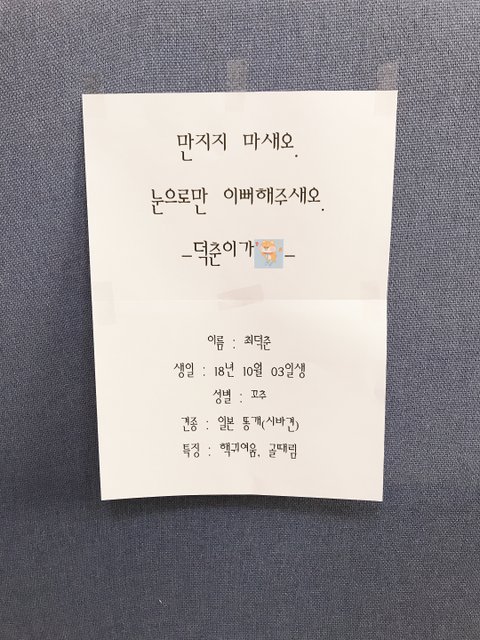 만지지 마새오.
눈으로만 이뻐해주새오.
-덕춘이가-
이름 : 최덕춘
생일 : 18년 10월 03일생
성별 : 꼬추
견종 : 일본 똥개(시바견)
특징 : 핵귀여움, 글때림